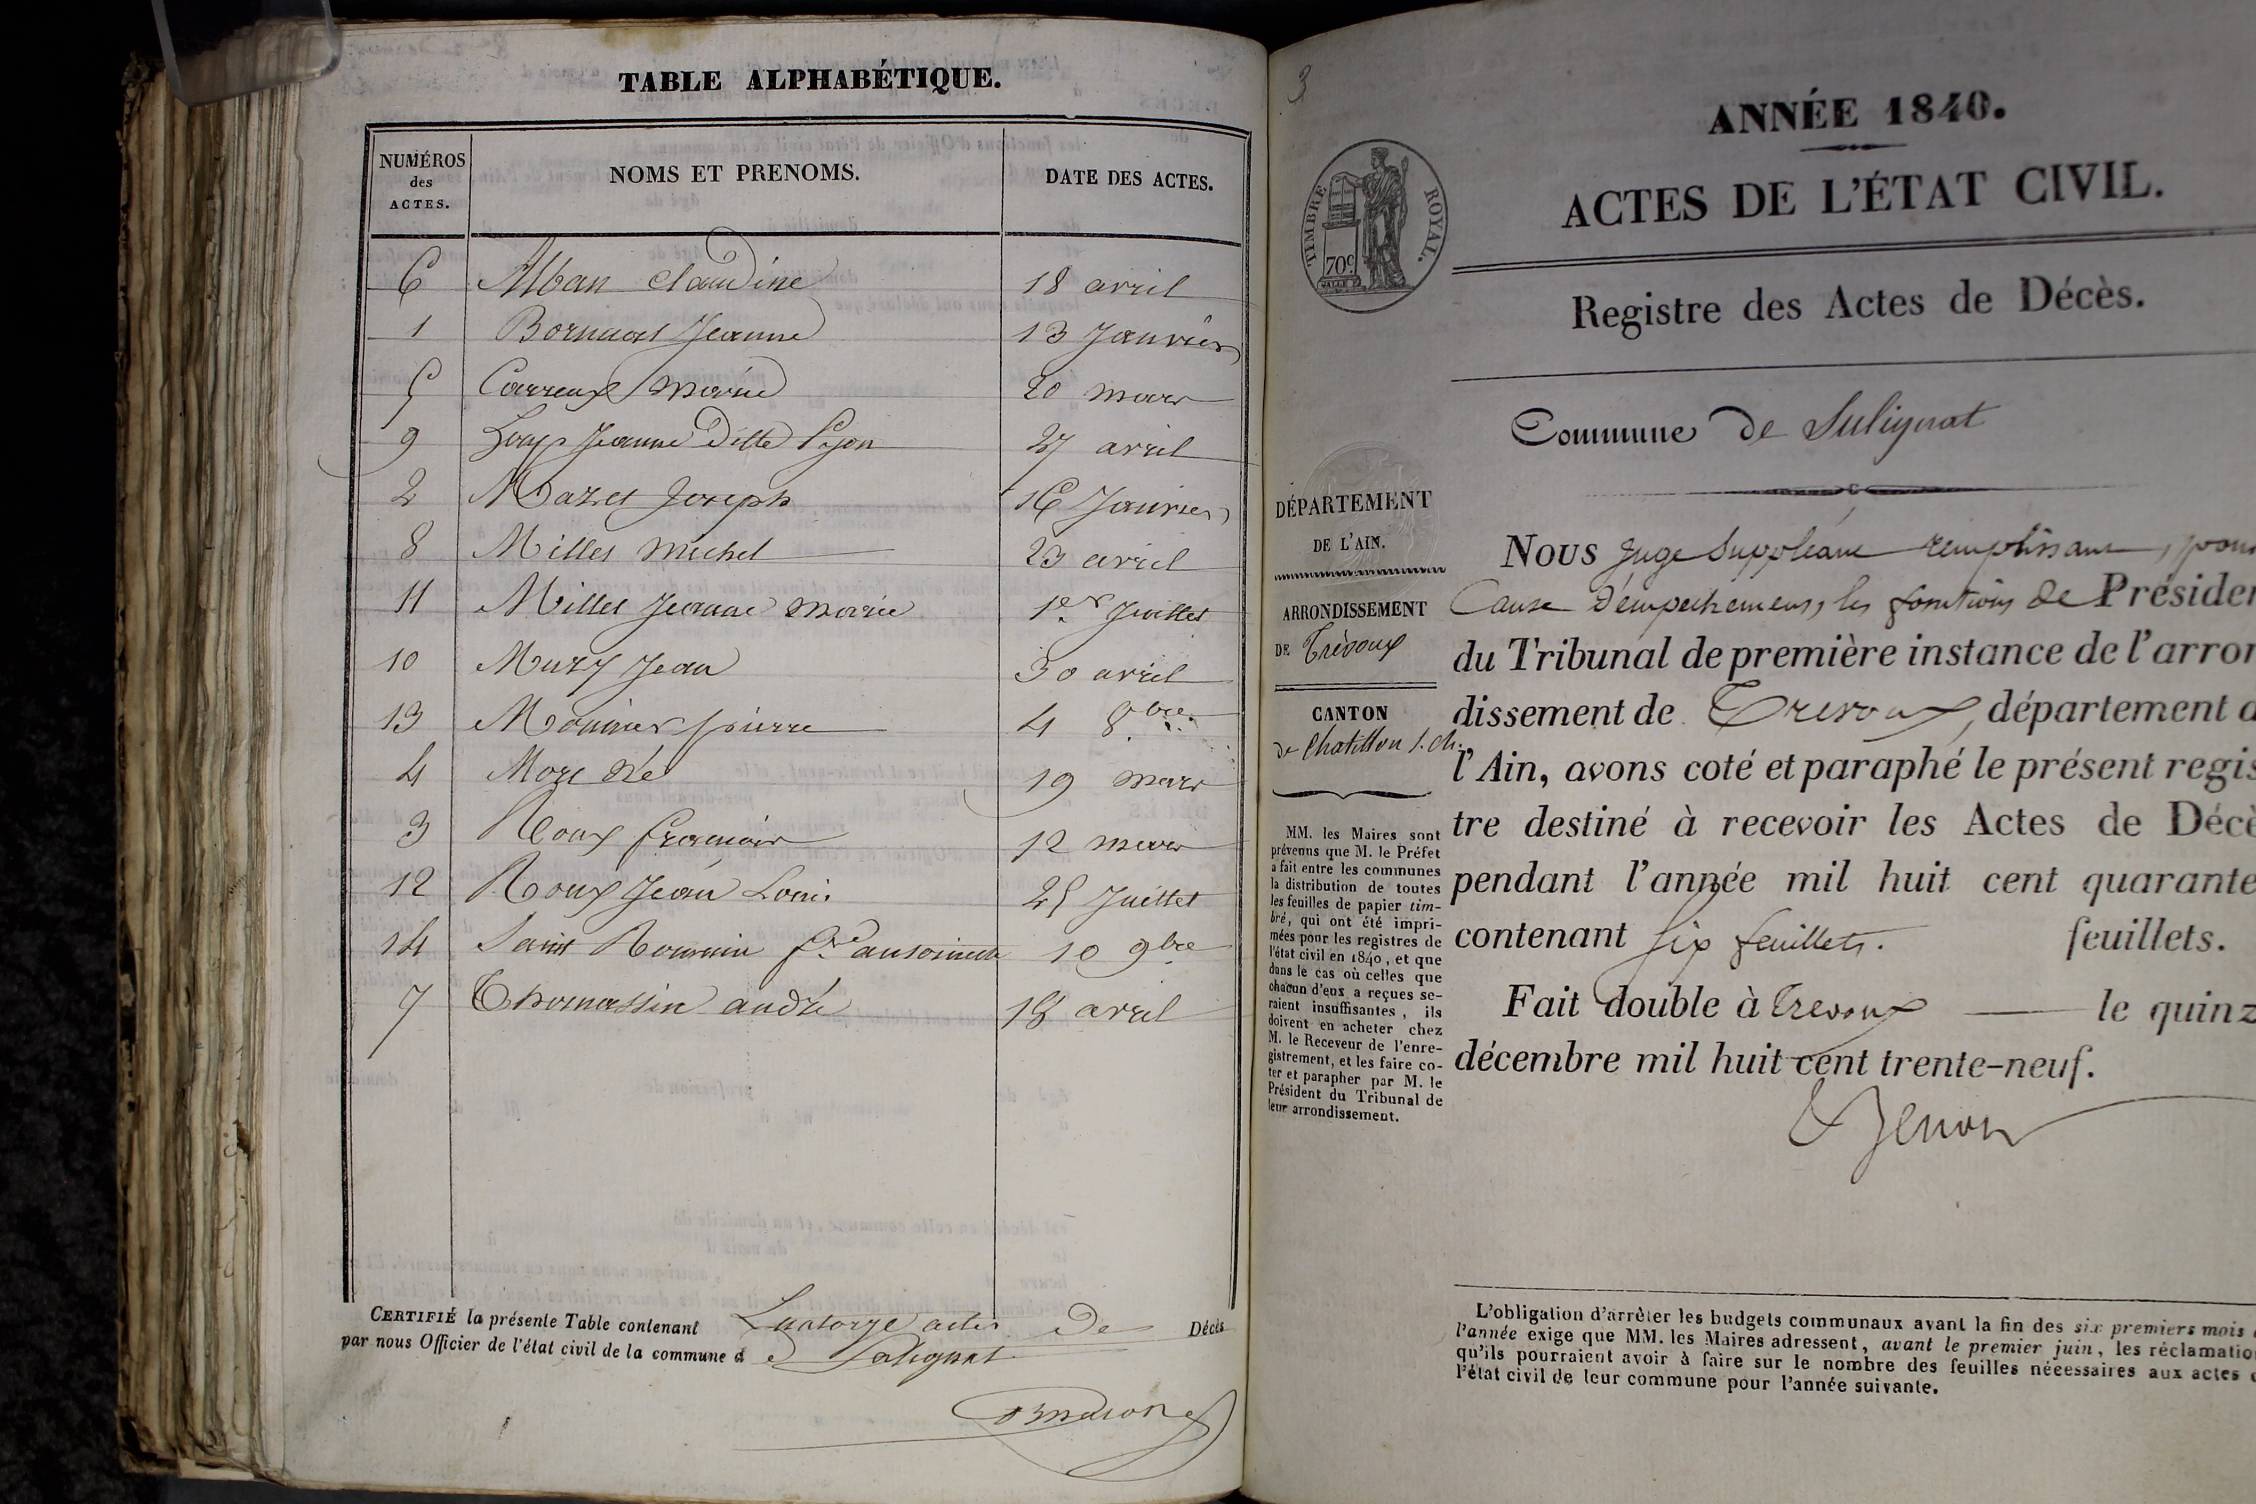 TABLE ALPHABÉTIQUE.
NUMÉROS des ACTES.
NOMS ET PRENOMS.
DATE DES ACTES.
6 Alban Claudine 18 avril
1 Jeanne 13 Janvier
5 Carreux Marie 20 mars
9 Loup Jeanne ditte Pyon 27 avril
2 Mazet Joseph 16 Janvier
8 Millet Michel 23 avril
11 Millet Jeanne Marie 1er Juillet
10 Mury Jean 30 avril
13 Monier pierre 4 8bre
4 Mort né 19 mars
3 Roux François 12 mars
12 Roux Jean Louis 25 Juillet
14 Saint Romain antoinette 10 9bre
7 Thomassin andré 18 avril
CERTIFIÉ la présente Table contenant quatorze actes de Décès
par nous Officier de l'état civil de la commune d e Sulignat
3
ANNÉE 1840.
ACTES DE L'ÉTAT CIVIL.
TIMBRE ROYAL.
70c
Registre des Actes de Décès.
Commune de Sulignat
DÉPARTEMENT
DE L'AIN.
ARRONDISSEMENT
DE Trévoux
CANTON
de Chatillon s. ch.
MM. les Maires sont
prévenus que M. le Préfet
a fait entre les communes
la distribution de toutes
les feuilles de papier tim-
bré, qui ont été impri-
mées pour les registres de
l'état civil en 1840, et que
dans le cas où celles que
chacun d'eux a reçues se-
raient insuffisantes, ils
doivent en acheter chez
M. le Receveur de l'enre-
gistrement, et les faire co-
ter et parapher par M. le
Président du Tribunal de
leur arrondissement.
NOUS Juge Suppléant remplissant, pour
Cause d'empechement, les fonctions de Présiden
du Tribunal de première instance de l'arron
dissement de Trevoux, département d
l'Ain, avons coté et paraphé le présent regis
tre destiné à recevoir les Actes de Décè
pendant l'année mil huit cent quarante
contenant six feuillets. feuillets.
Fait double à Trevoux le quinz
décembre mil huit cent trente-neuf.
L'obligation d'arrêter les budgets communaux avant la fin des six premiers mois
l'année exige que MM. les Maires adressent, avant le premier juin, les réclamatio
qu'ils pourraient avoir à faire sur le nombre des feuilles nécessaires aux actes
l'état civil de leur commune pour l'année suivante.